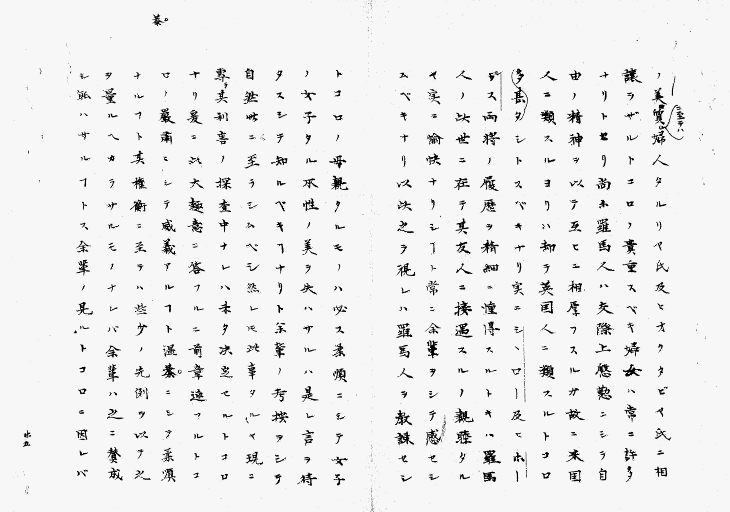 ノ美質婦人タルリベ氏及ヒオクタビヤ氏ニ相
讓ラザルトコロノ貴重スベキ婦女ハ常ニ許多
ナリトセリ尚ホ羅馬人ハ交際上慇懃ニシテ自
由ノ精神ヲ以テ互ヒニ相厚フスルガ故ニ米国
人ニ類スルヨリハ却テ英国人ニ類スルトコロ
多甚タシトスベキナリ実ニシヽロー及ヒホー
デス両将ノ履歴ヲ精細ニ憧得スルトキハ羅馬
人ノ此世ニ在テ其友人ニ接遇スルノ親睦タル
ヤ実ニ愉快ナリシコト常ニ余輩ヲシテ感セシ
ムベキナリ以此之ヲ視レハ羅馬人ヲ教誨セシ
トコロノ母親タルモノハ必ス柔順ニシテ女子
ノ女子タル本性ノ美ヲ失ハサルハ是レ言ヲ待
タスシテ知ルベキコナリト余輩ノ考按ヲシテ
自然此ニ至ラシムベシ然レモ此事タルヤ現ニ
専其利害ノ探査中ナレハ未タ決定セルトコロ
ナリ爰ニ此大趣意ニ答フルニ前章述フルトコ
ロノ嚴肅ニシテ威義アルコト温柔ニシテ柔順
ナルコト其権衡ニ至テハ些少ノ先例ヲ以テ之
ヲ量ルヘカラサルモノナレバ余輩ハ之ニ賛成
シ能ハサルコトス余輩ノ見ルトコロニ因レバ